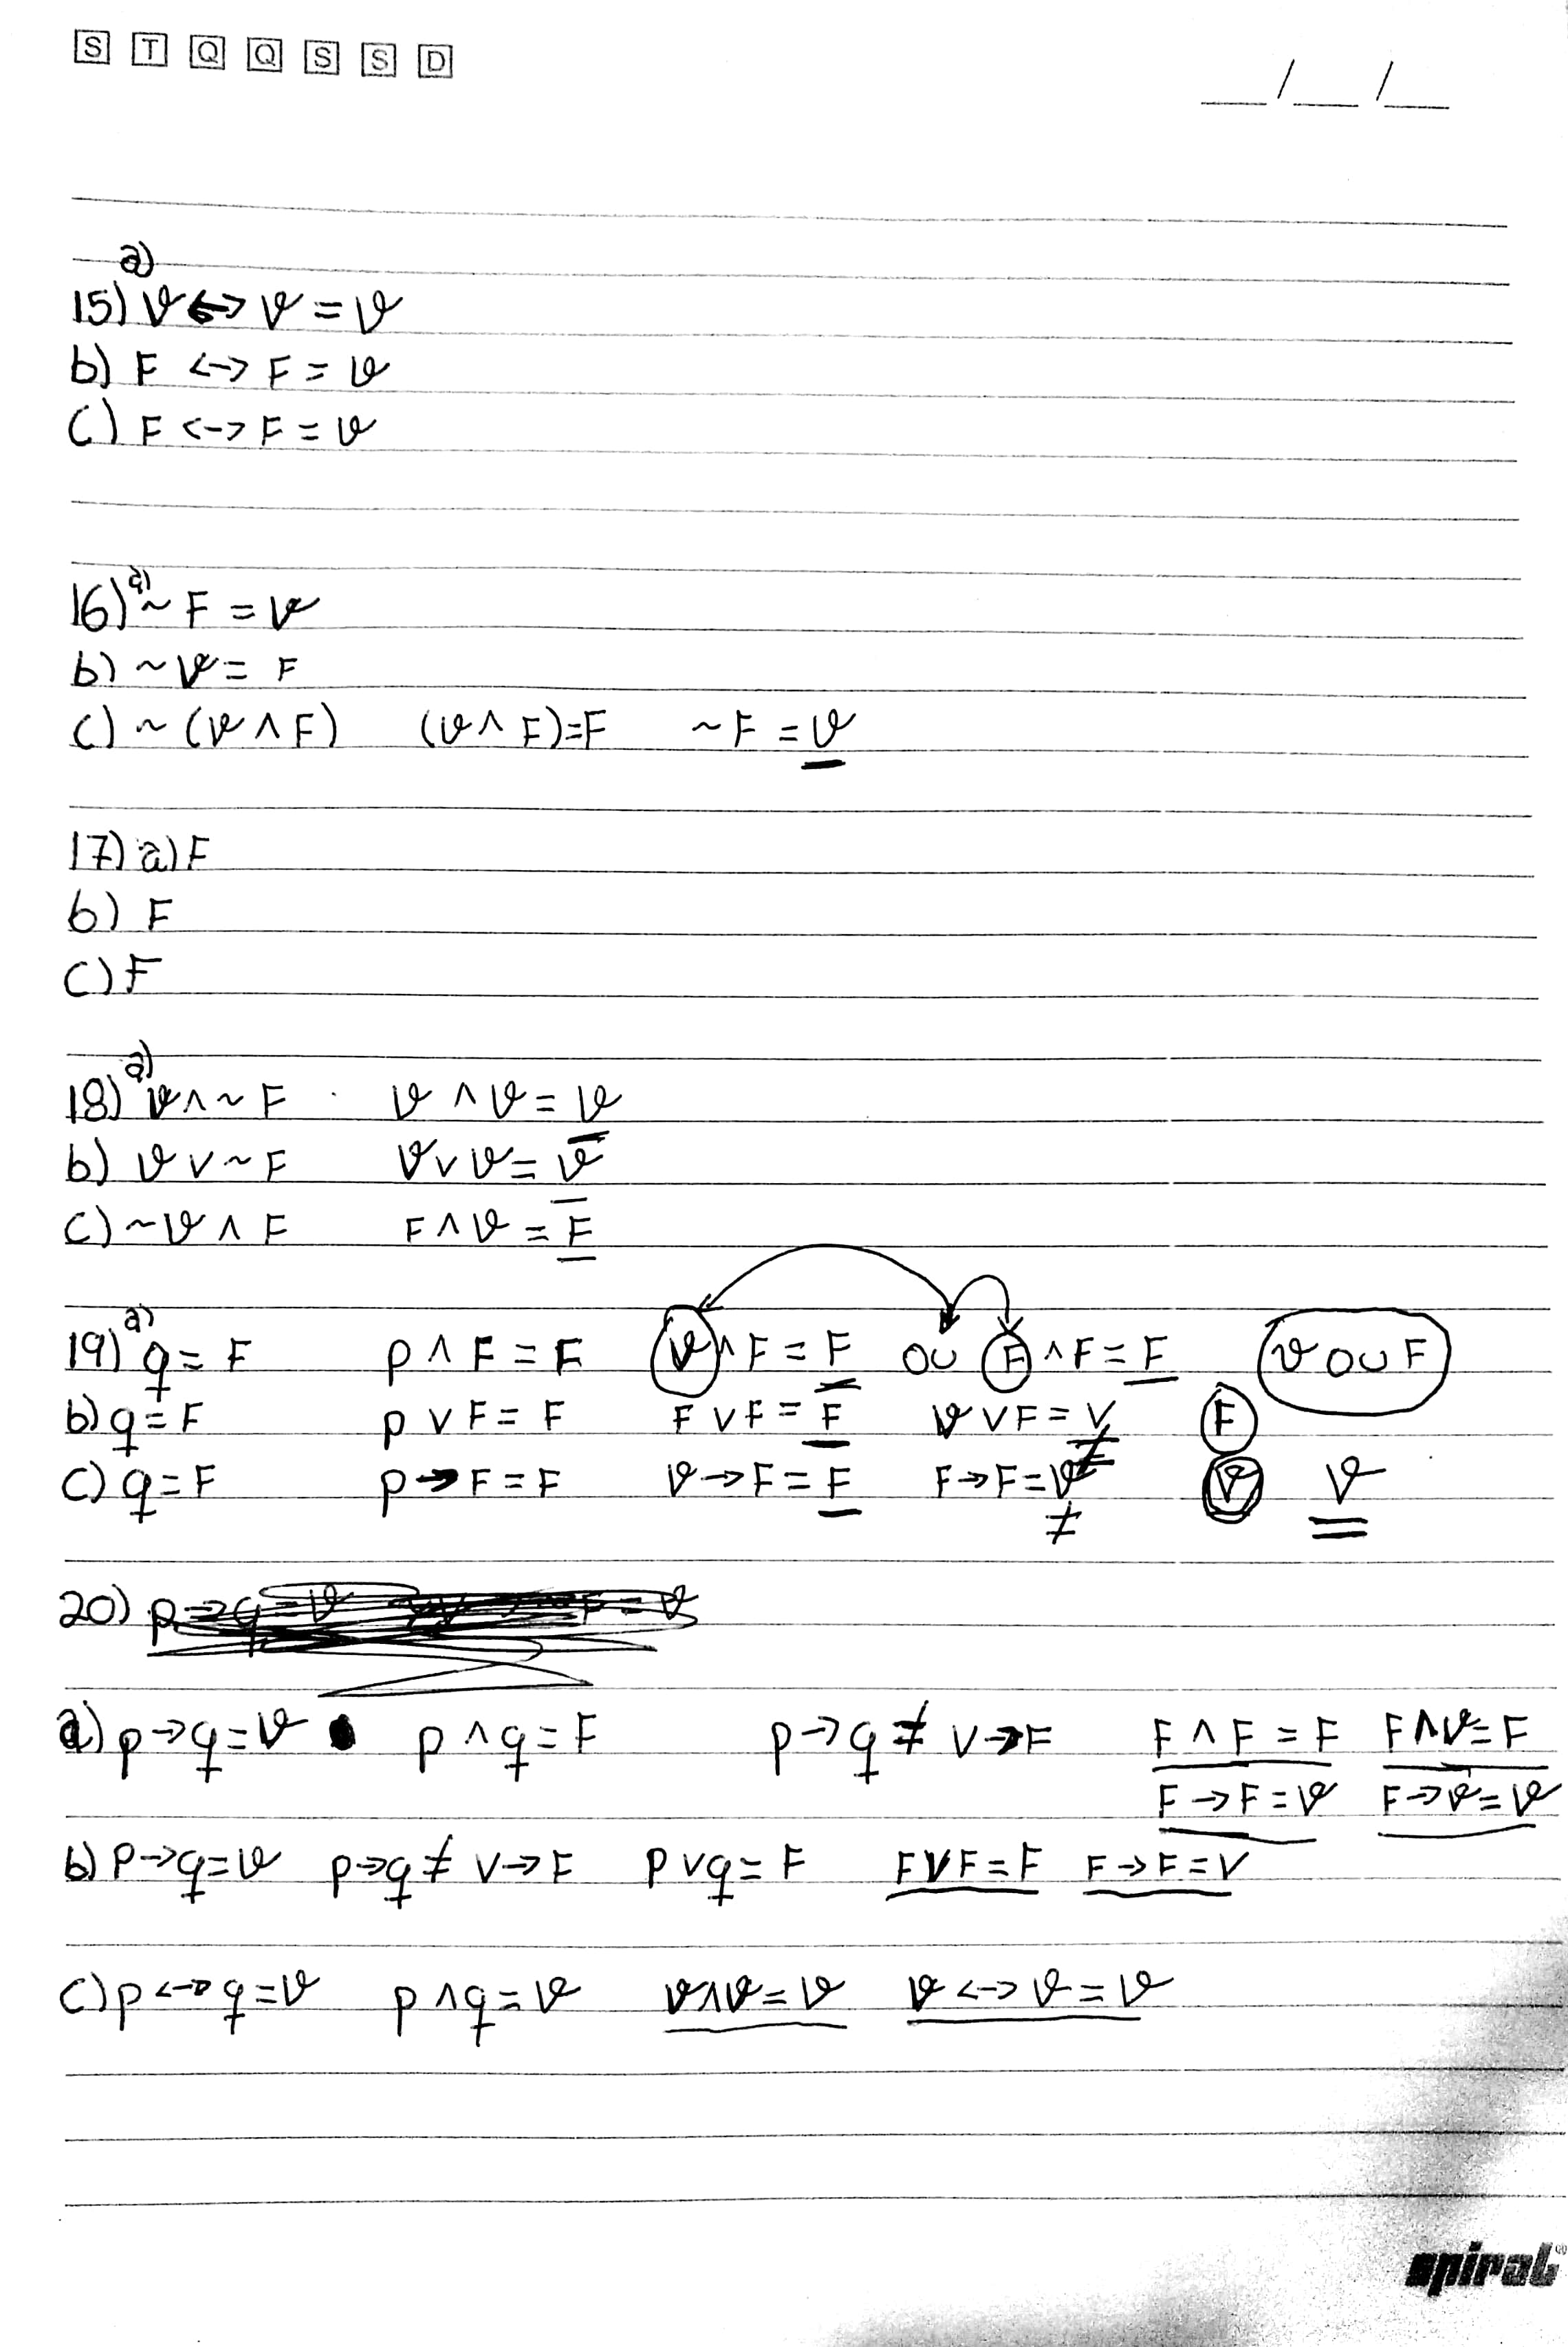 S T Q Q S S D
__/__/__
a)
15) V <-> V = V
b) F <-> F = V
c) F <-> F = V
16) a) ~ F = V
b) ~V = F
c) ~ (V ∧ F) (V ∧ F)=F ~F = V
17) a) F
b) F
c) F
18) a) V ∧ ~ F V ∧ V = V
b) V ∨ ~ F V ∨ V = V
c) ~V ∧ F F ∧ V = F
19) a) q = F p ∧ F = F V ∧ F = F ou F ∧ F = F V ou F
b) q = F p ∨ F = F F ∨ F = F V ∨ F = V ≠ F
c) q = F p -> F = F V -> F = F F -> F = V ≠ V V
20) p -> q = V F = V
a) p -> q = V p ∧ q = F p -> q ≠ V -> F F ∧ F = F F ∧ V = F
F -> F = V F -> V = V
b) p -> q = V p -> q ≠ V -> F p ∨ q = F F ∨ F = F F -> F = V
c) p <-> q = V p ∧ q = V V ∧ V = V V <-> V = V
spiral